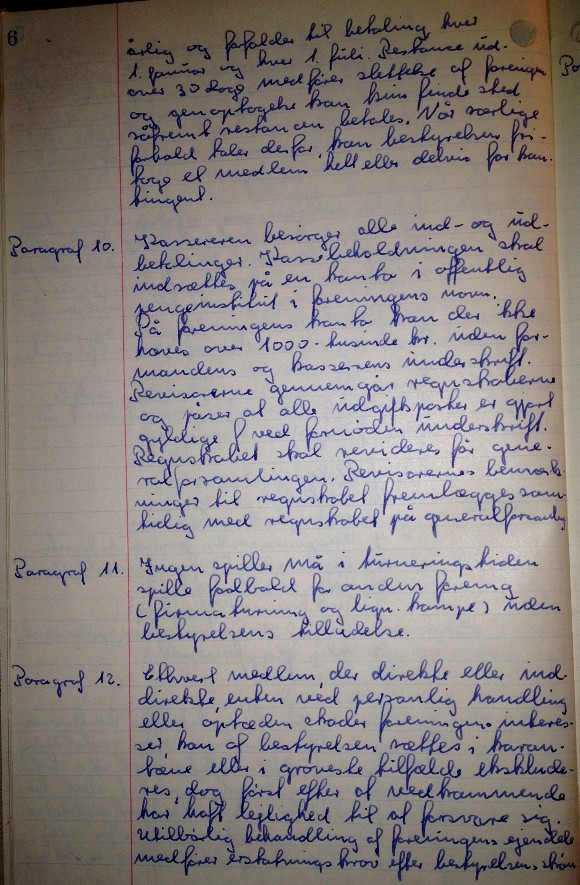 6
årlig og forfalder til betaling hver
1. januar og hver 1. juli. Restance ud-
over 30 dage medfører slettelse af foreningen
og genoptagelse kan kun finde sted
såfremt restancen betales. Når særlige
forhold taler derfor, kan bestyrelsen fri-
tage et medlem helt eller delvis for kon-
tingent.
Paragraf 10. Kassereren besørger alle ind- og ud-
betalinger. Kassebeholdningen skal
indsættes på en konto i offentlig
pengeinstitut i foreningens navn.
På foreningens konto kan der ikke
hæves over 1000- tusinde kr. uden for-
mandens og kasserens underskrift.
Revisorerne gennemgår regnskaberne
og påser at alle udgiftsposter er gjort
gyldige ved fornøden underskrift.
Regnskabet skal revideres før gene-
ralforsamlingen. Revisorernes bemærk-
ninger til regnskabet fremlægges sam-
tidig med regnskabet på generalforsamling
Paragraf 11. Ingen spiller må i turneringstiden
spille fodbold for anden forening
(firmaturning og lign. kampe) uden
bestyrelsens tilladelse.
Paragraf 12. Ethvert medlem, der direkte eller ind-
direkte, enten ved personlig handling
eller optræden skader foreningens interes-
ser, kan af bestyrelsen sættes i karan-
tæne eller i groveste tilfælde eksklude-
res, dog først efter at vedkommende
har haft lejlighed til at forsvare sig.
Utilbørlig behandling af foreningens ejendele
medfører erstatningskrav efter bestyrelsens skøn
Pa